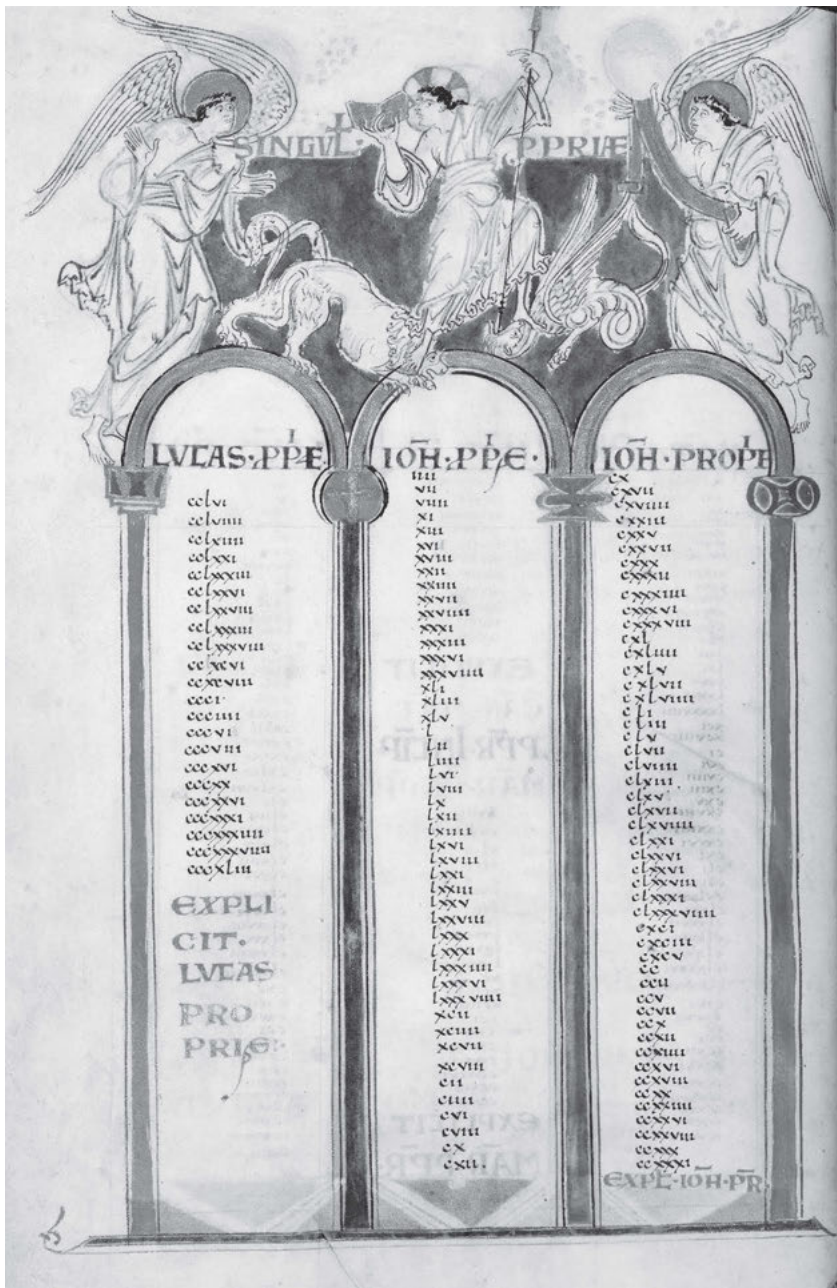 SINGVL· PPRIÆ
LVCAS·PPE
cclvi
cclviiii
cclxiiii
cclxxi
cclxxxiii
cclxxvi
cclxxviii
cclxxxiii
cclxxxviii
ccxcvi
ccxcviii
ccci
ccciiii
cccvi
cccviii
cccxvi
cccxx
cccxxvi
cccxxxi
cccxxxiiii
cccxxxviiii
cccxliii
EXPLI
CIT·
LVCAS
PRO
PRIE·
IOH̄·PPE·
iiii
vii
viiii
xi
xiii
xvi
xviii
xxii
xxiiii
xxvii
xxviiii
xxxi
xxxiii
xxxvi
xxxviiii
xli
xliii
xlv
l
lii
liiii
lvi
lviii
lx
lxii
lxiiii
lxvi
lxviii
lxxi
lxxiii
lxxv
lxxviii
lxxx
lxxxi
lxxxiiii
lxxxvi
lxxxviiii
xcii
xciiii
xcvii
xcviii
cii
ciiii
cvi
cviii
cx
cxii.
IOH̄·PROPE
cx
cxvii
cxviiii
cxxiii
cxxv
cxxvii
cxxx
cxxxii
cxxxiiii
cxxxvi
cxxxviii
cxl
cxliiii
cxlv
cxlvii
cxlviiii
cli
cliii
clv
clvii
clviiii
clxiii
clxv
clxvii
clxviiii
clxxi
clxxvi
clxxvi
clxxviii
clxxxi
clxxxviii
cxci
cxciii
cxcv
cc
ccii
ccv
ccvii
ccx
ccxii
ccxiiii
ccxvi
ccxviii
ccxx
ccxxiiii
ccxxvi
ccxxviii
ccxxx
ccxxxi
EXPL·IOH̄·PR̄·